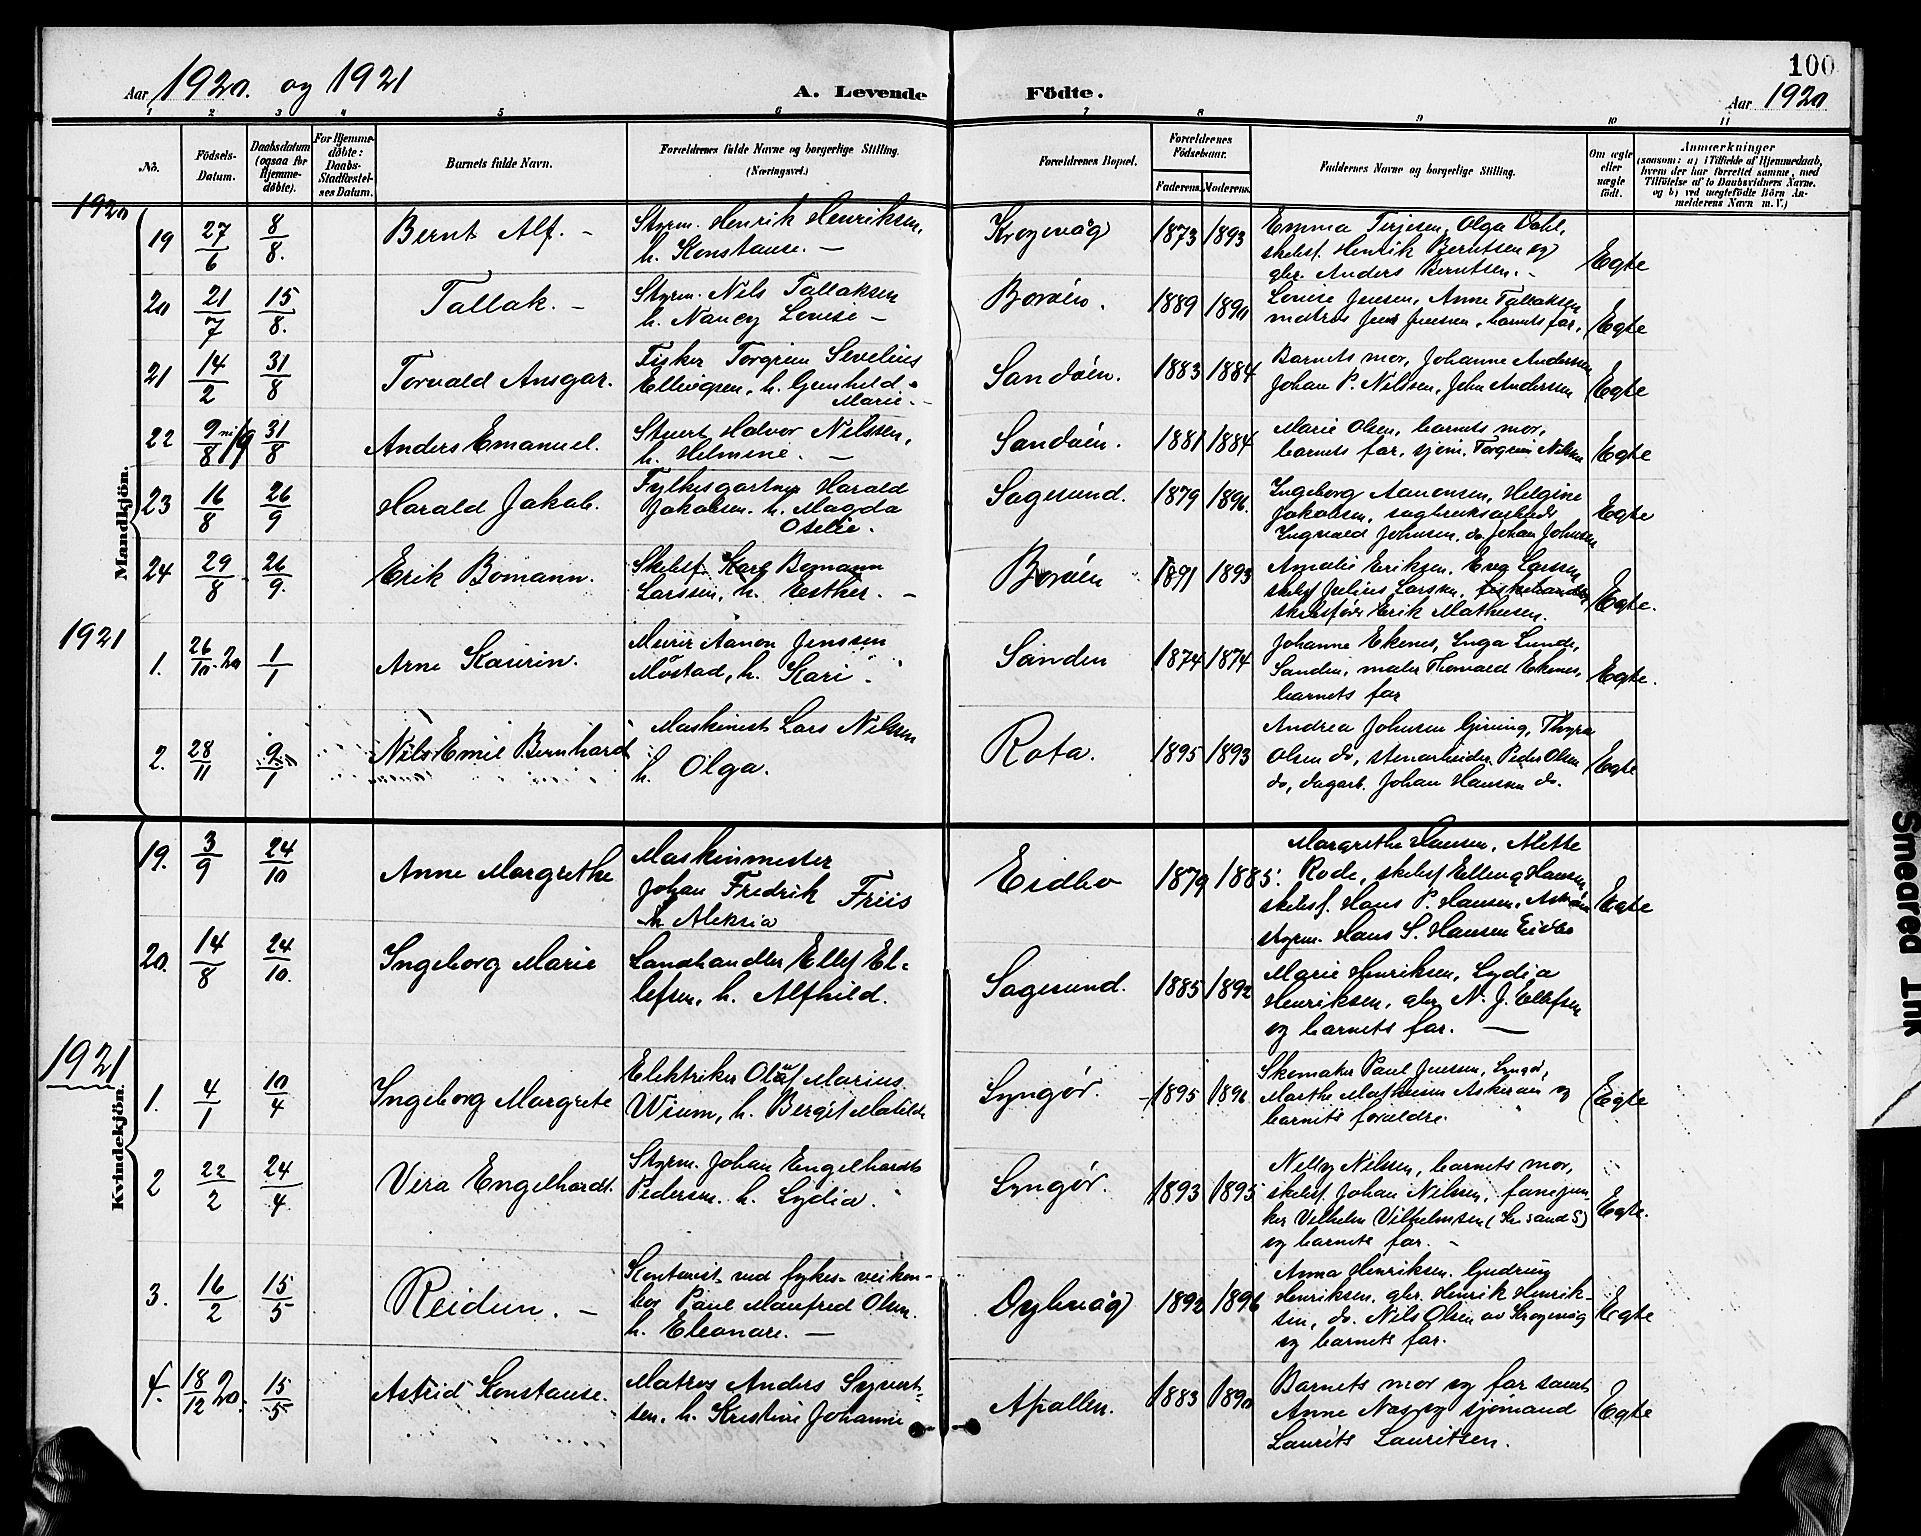 100
Aar 1920. og 1921
A. Levende Födte.
Aar 1920
1 2 3 4 5 6 7 8 9 10 11
No.
Födsels-Datum.
Daabsdatum (ogsaa for Hjemmedöbte).
For Hjemmedöbte: Daabs-Stadfæstelses Datum.
Barnets fulde Navn.
Forældrenes fulde Navne og borgerlige Stilling. (Næringsvei.)
Forældrenes Bopæl.
Forældrenes Födselsaar.
Faderens. Moderens.
Faddernes Navne og borgerlige Stilling.
Om ægte eller uægte födt.
Anmærkninger
(saasom: a) i Tilfælde af Hjemmedaab, hvem der har forrettet samme, med Tilföielse af to Daabsvidners Navne, og b) ved uægtefödte Börn Anmelderens Navn m. V.)
1920
Mandkjön.
19 27/6 8/8. Bernt Alf. - Styrm. Henrik Henriksen, h. Konstanse. - Krogevåg 1873 1893 Emma Terjesen, Olga Dahl, skibsf. Henrik Berntsen og gbr. Anders Berntsen. - Egte
20 21/7 15/8. Tallak. - Styrm. Nils Tallaksen h. Nancy Louise - Borøen. 1889 1890 Louise Jensen, Anne Tallaksen matros Jens Jensen, barnets far. Egte
21 14/2 31/8 Torvald Ansgar. Fisker Torgrim Sevelius Ellevgsen, h. Gunhild Marie. - Sandøen. 1883 1884 Barnets mor, Johanne Andersen Johan P. Nilssen, John Andersen Egte
22 9/8 31/8 Anders Emanuel. Stuert Halvor Nilssen, h. Helmine. - Sandøen. 1881 1884 Marie Olsen, barnets mor, barnets far, sjøm. Torgrim Nilssen Egte
23 16/8 26/9 Harald Jakob. Fylkesgartner Harald Jakobsen. h. Magda Otelie. Sagesund. 1879 1896. Ingeborg Aanonsen, Helgine Jakobsen, sagbruksarbeider Ingvald Johnsen, do Johan Johnsen Egte
24 29/8 26/9. Erik Bomann. Skibsf. Karl Bomann Larssen, h. Esther. - Borøen 1891 1893 Amalie Eriksen, Eveg Larssen skibsf Julius Larssen, fiskehandler skibsfører Erik Mathiesen. Egte.
1921
1. 26/10.20 1/1 Arne Kaurin. Murer Aanon Jenssen Møstad, h. Kari. Sanden 1874 1874 Johanne Ekenes, Inga Lunde, Sanden, maler Thorvald Ekenes, barnets far Egte.
2. 28/11 9/1 Nils Emil Bernhard Maskinist Lars Nilssen h. Olga. Rota. 1895 1893 Andrea Johnsen Gjeving, Thyra Olsen do, stenarbeider Peder Olsen do, dagarb. Johan Hanssen do. Egte
Kvindekjön.
19. 3/9 24/10 Anne Margrethe Maskinmester Johan Fredrik Friis h. Aleksia Eidbo 1879 1885. Margrethe Hansen, Mette Rode, skibsf Elling Hansen skibsf. Hans P. Hansen, Askerøen styrm. Hans S. Hansen Eidbo Egte
20. 14/8 24/10. Ingeborg Marie Landhandler Ellef Ellefsen, h. Alfhild. Sagesund. 1885 1892 Marie Henriksen, Lydia Henriksen, gbr N. J. Ellefsen og barnets far. -
1921
1. 4/1 10/4 Ingeborg Margrete Elektriker Oluf Marius Wium, h. Bergit Matilde Lyngør. 1895 1896. Skomaker Paul Jensen, Lyngør, Marthe Mathiesen Askerøen og barnets forældre. Egte
2 22/2 24/4 Vera Engelhardt. Styrm. Johan Engelhardt Pedersen. h. Lydia. Lyngør. 1893 1895 Nelly Nilssen, barnets mor, skibsf. Johan Nilssen, fanejunker Vilhelm Vilhelmsen (Kr.sand S) og barnets far. - Egte.
3. 16/2 15/5 Reidun. - Kontorist ved fylkes-veikontor Paul Manfred Olsen. h. Eleonare. - Dybvåg 1892 1896 Anna Henriksen. Gudrun Henriksen, gbr. Henrik Henriksen, do. Nils Olsen av Krogevåg og barnets far. Egte
4. 18/12 20. 15/5 Astrid Konstanse. Matros Anders Syvertsen, h. Kristine Johanne Apallen. 1883 1890 Barnets mor og far samt Anne Næs og sjømand Laurits Lauritsen. Egte
Smeared Ink